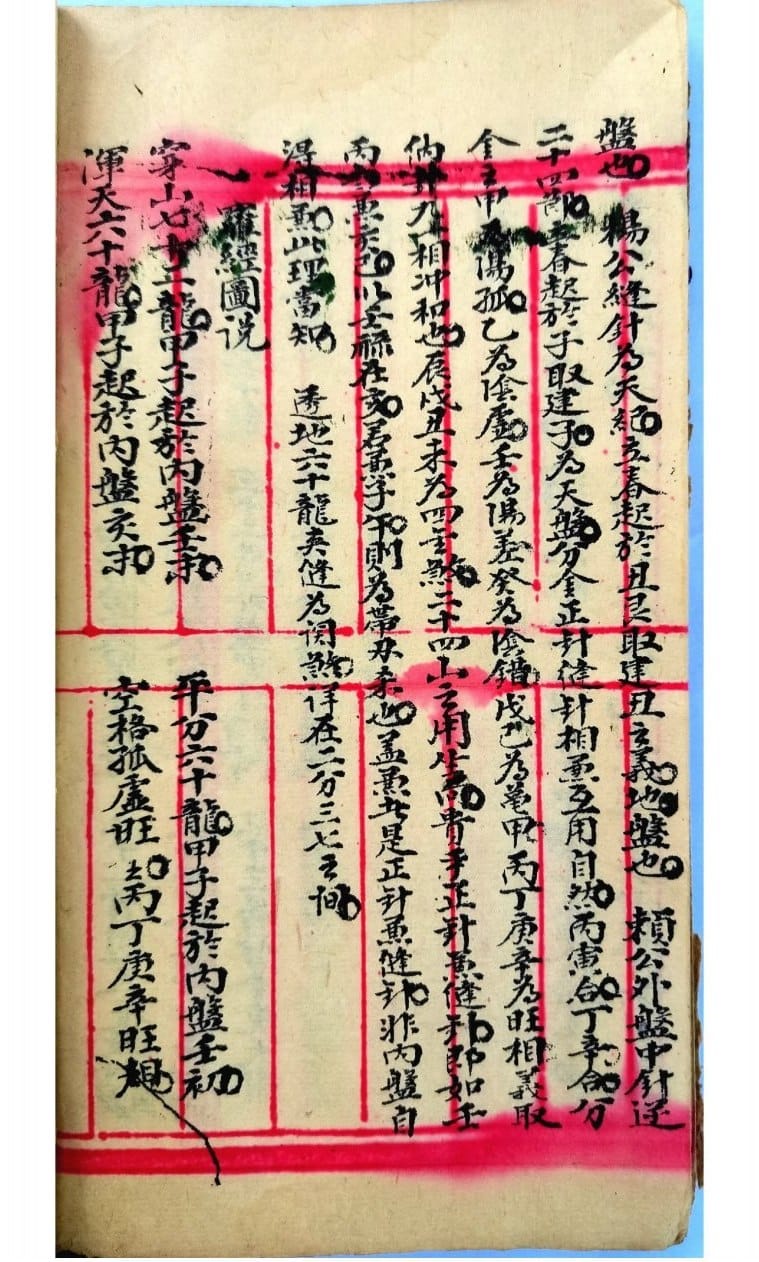 盤也 楊公縫針為天紀立春起於丑艮取建丑之義地盤也 賴公外盤中針逆
二十四節立春起於子取建子為天盤分金正針縫針相兼互用自然丙寅合丁辛合分
金之甲為陽孤乙為陰虛壬為陽差癸為陰錯戊己為 甲丙丁庚辛為旺相義取
納卦九 相冲和也辰戌丑未為四金煞二十四山之用 貴乎正針兼縫針即如壬
丙 兼亥巳以壬祿在亥若兼子午則為帶刃柔也蓋兼者是正針兼縫針非內盤自
得相兼此理當知 透地六十龍夾縫為関煞詳在二分三七之間
一羅經圖说
穿山七十二龍甲子起於內盤壬末 平分六十龍甲子起於內盤壬初
渾天六十龍甲子起於內盤亥末 空格孤虛旺 丙丁庚辛旺相